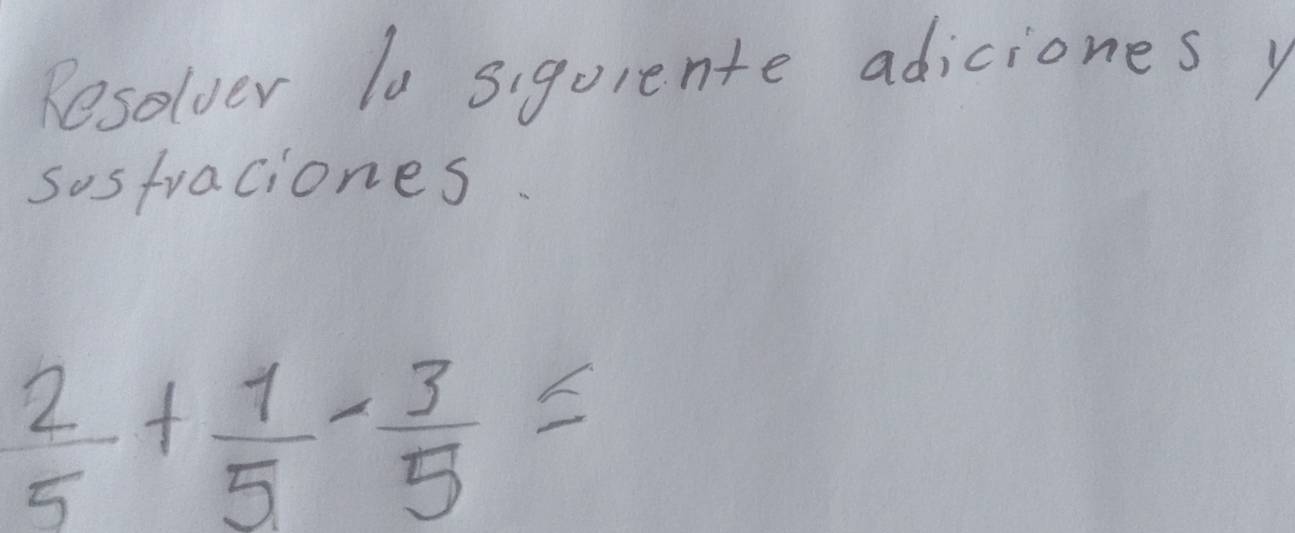 Resolver la siguiente adiciones y
sustraciones.
2/5 + 1/5 - 3/5 =